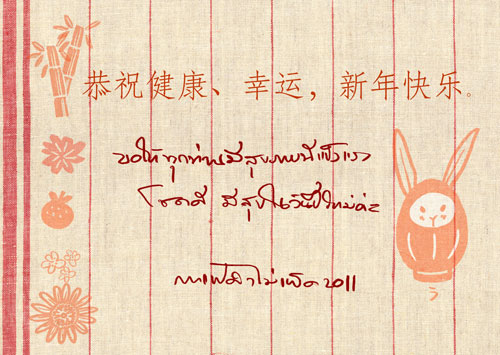 恭祝健康、幸运，新年快乐。
ขอให้ทุกท่านมีสุขภาพที่แข็งแรง
โชคดี มีสุขในวันปีใหม่ค่ะ
กาแฟดำไม่เผ็ด 2011